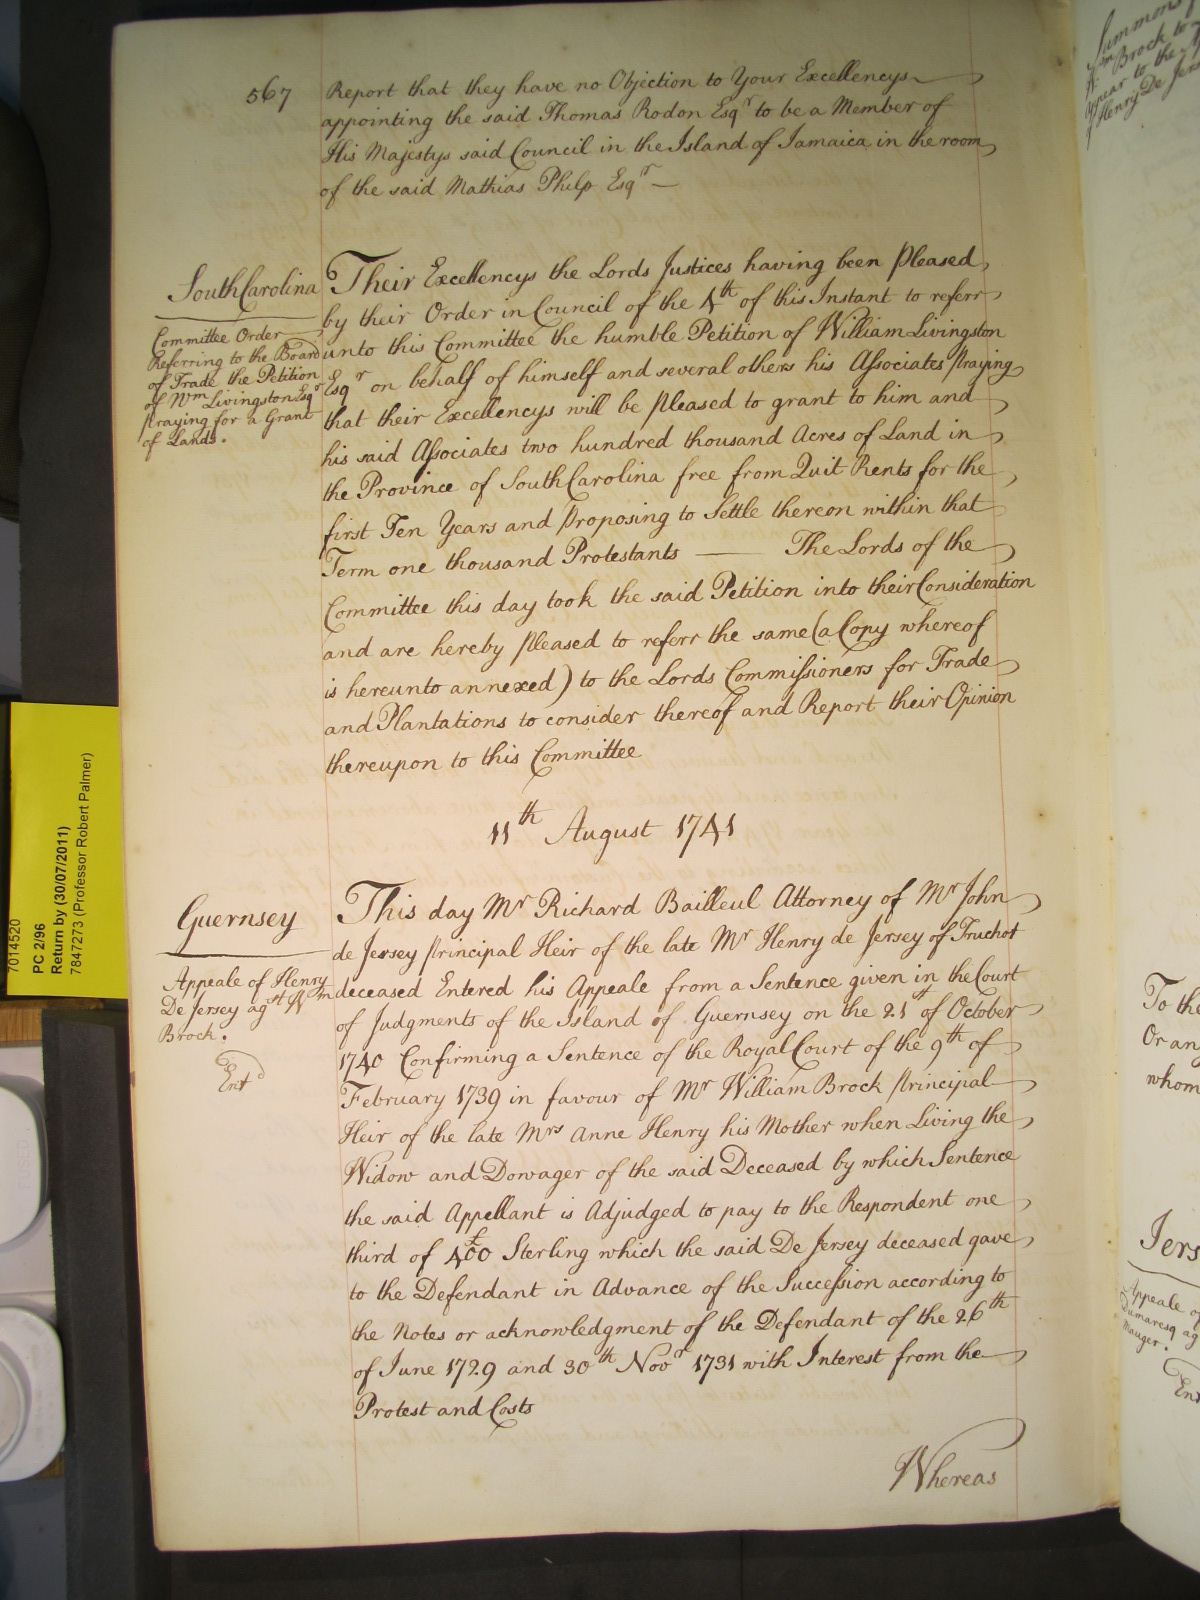 567
Report that they have no Objection to Your Excellencys
appointing the said Thomas Rodon Esqr to be a Member of
His Majestys said Council in the Island of Jamaica in the room
of the said Mathias Philp Esqr —
South Carolina
Committee Order
Referring to the Board
of Trade the Petition
of Wm Livingston Esqr
praying for a Grant
of Lands.
Their Excellencys the Lords Justices having been pleased
by their Order in Council of the 4th of this Instant to referr
unto this Committee the humble Petition of William Livingston
Esqr on behalf of himself and several others his Associates praying
that their Excellencys will be pleased to grant to him and
his said Associates two hundred thousand Acres of Land in
the Province of South Carolina free from Quit Rents for the
first Ten Years and proposing to Settle thereon within that
Term one thousand Protestants — The Lords of the
Committee this day took the said Petition into their Consideration
and are hereby pleased to referr the same (a Copy whereof
is hereunto annexed) to the Lords Commissioners for Trade
and Plantations to consider thereof and Report their Opinion
thereupon to this Committee
11th August 1741
Guernsey
Appeale of Henry
De Jersey agst Wm
Brock.
Entd
This day Mr Richard Bailleul Attorney of Mr John
de Jersey principal Heir of the late Mr Henry de Jersey of Truchot
deceased Entered his Appeale from a Sentence given in the Court
of Judgments of the Island of Guernsey on the 21st of October
1740 Confirming a Sentence of the Royal Court of the 9th of
February 1739 in favour of Mr William Brock principal
Heir of the late Mrs Anne Henry his Mother when Living the
Widow and Dowager of the said Deceased by which Sentence
the said Appellant is Adjudged to pay to the Respondent one
third of £400 Sterling which the said De Jersey deceased gave
to the Defendant in Advance of the Succession according to
the Notes or acknowledgment of the Defendant of the 26th
of June 1729 and 30th Novr 1731 with Interest from the
Protest and Costs
Whereas
7014520
PC 2/96
Return by (30/07/2011)
7847273 (Professor Robert Palmer)
Summons
Brock to
Appear to the
of Henry De Jers
To the
Or an
whom
Jers
Appeale of
Dumaresq ag
Mauger.
Ent